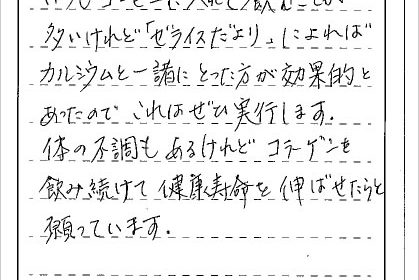 いつもコーヒーに入れて飲むことが
多いけれど「ゼライスだより」によれば
カルシウムと一諸にとった方が効果的と
あったので これはぜひ実行します.
体の不調も あるけれど コラーゲンを
飲み続けて 健康寿命を 伸ばせたらと
願っています.